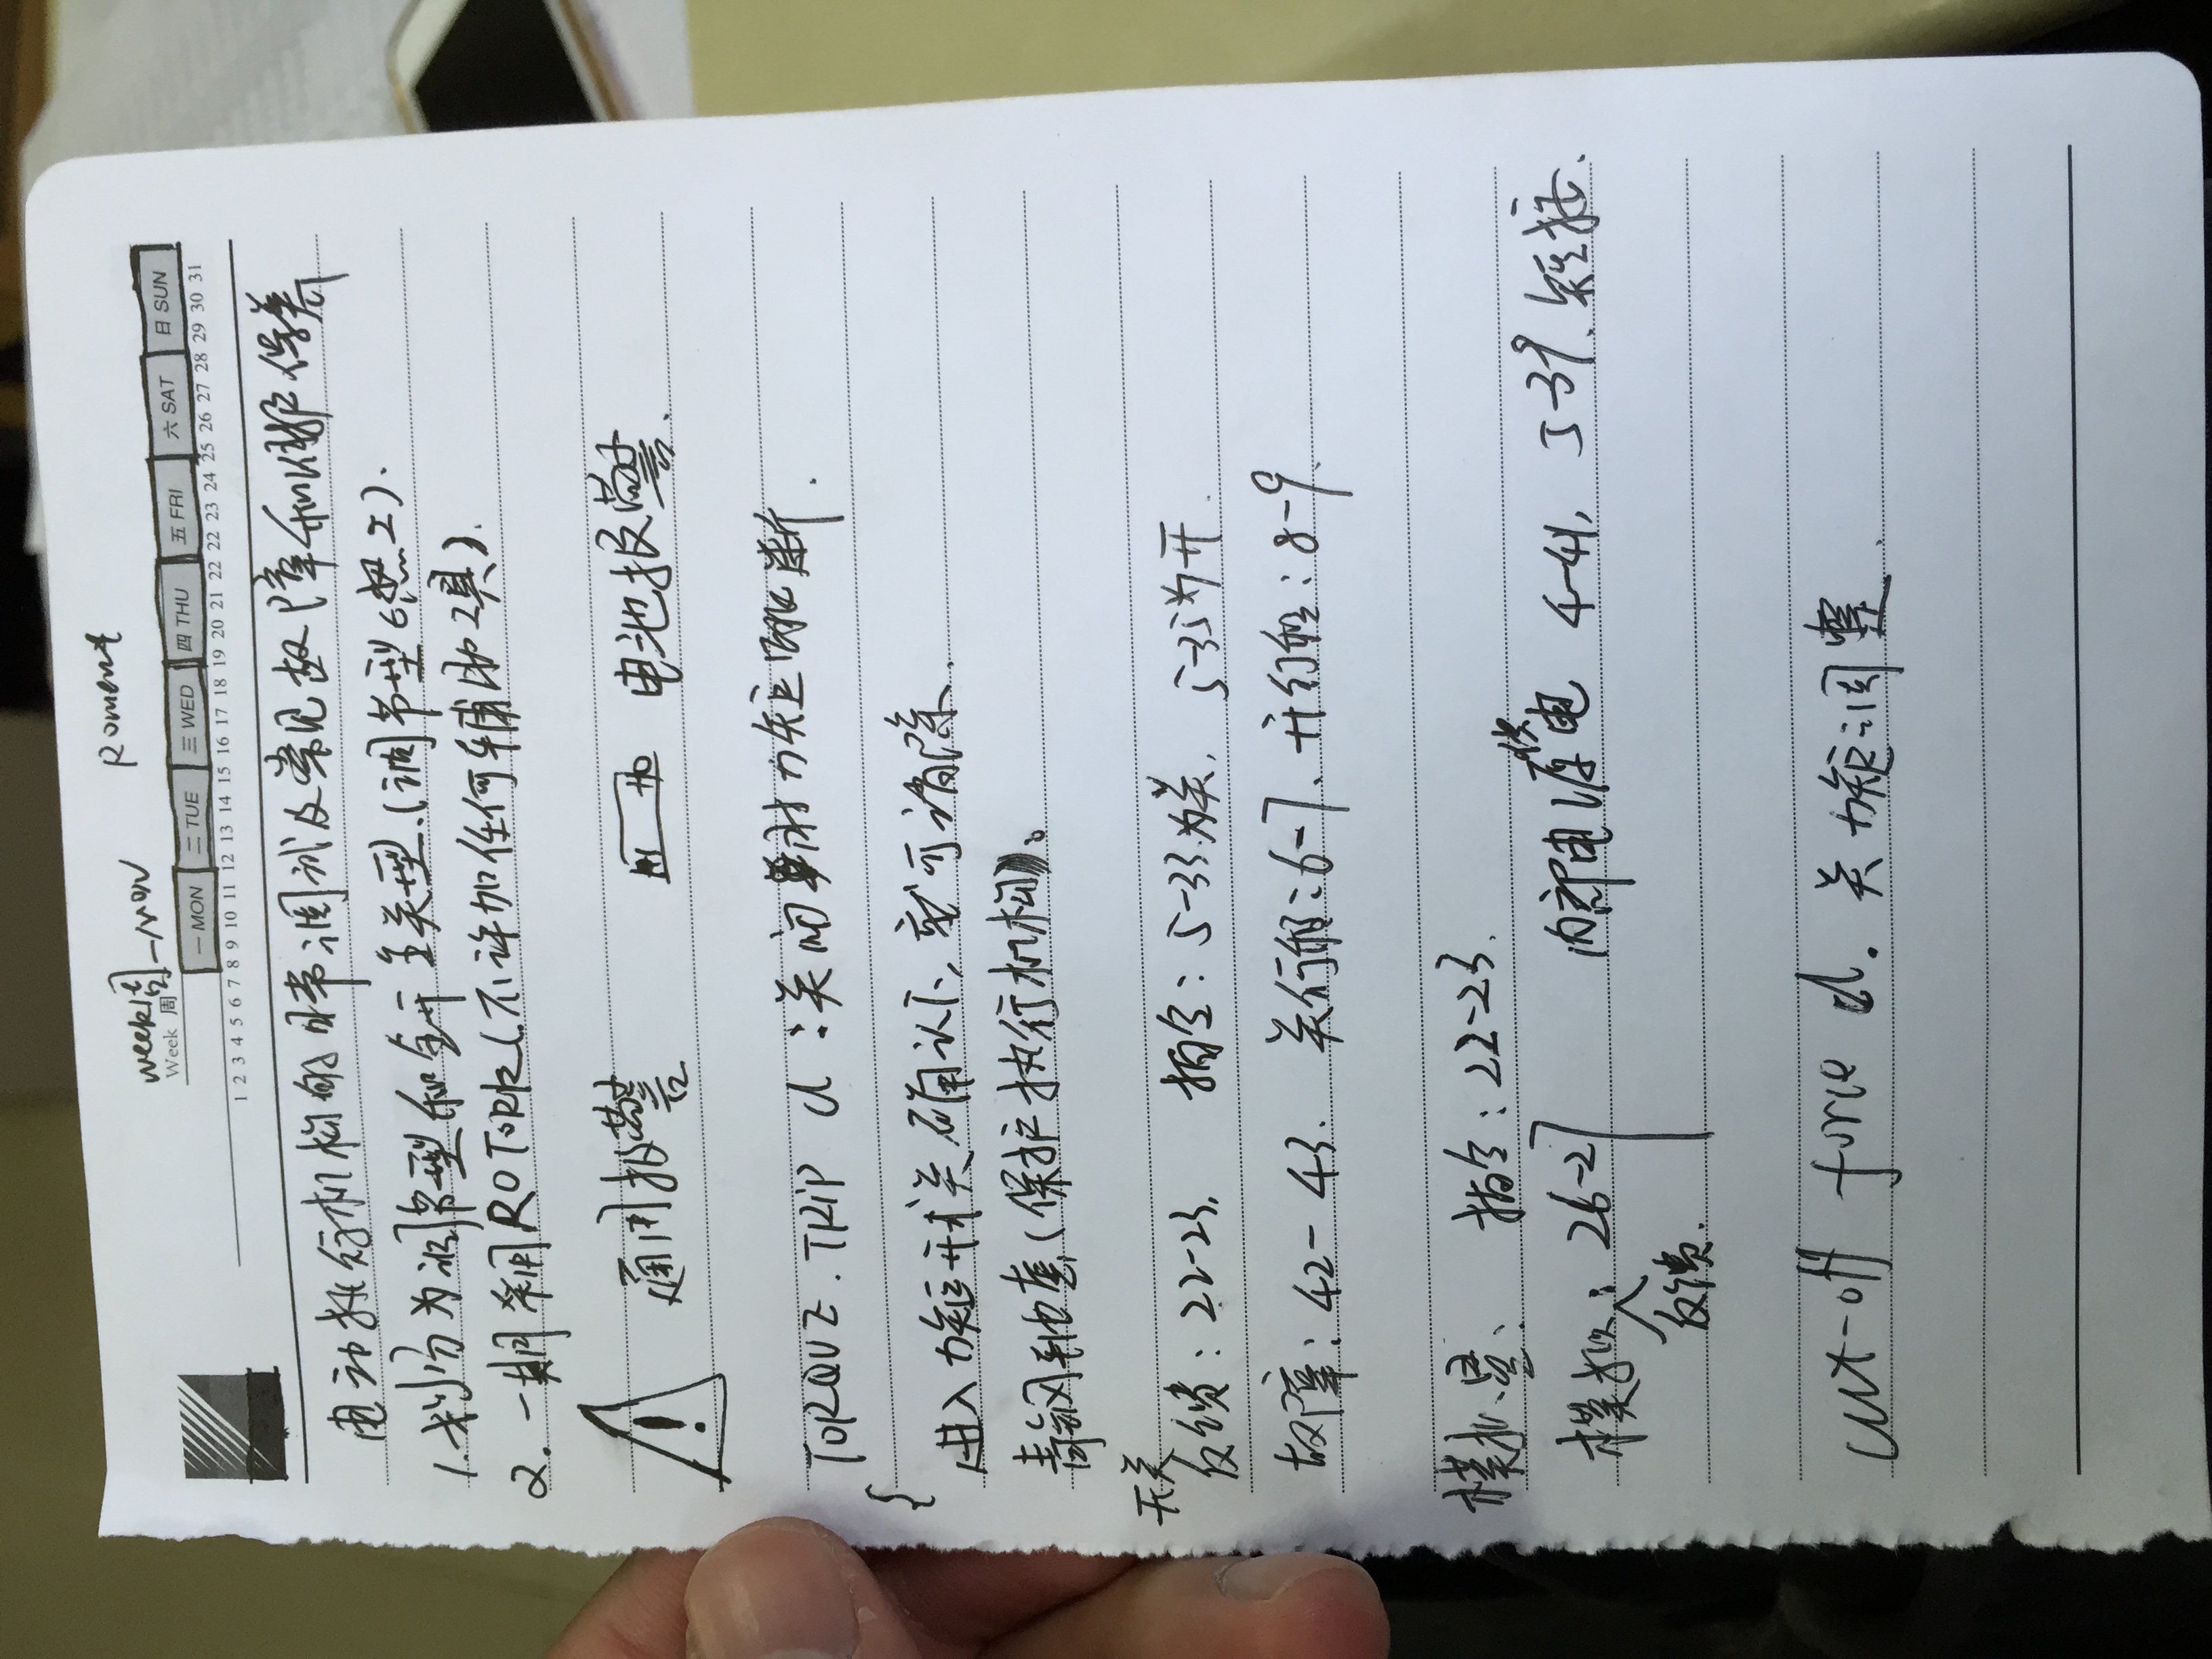 week周 一MON Roment
Week 周
一 MON 二 TUE 三 WED 四 THU 五 FRI 六 SAT 日 SUN
1 2 3 4 5 6 7 8 9 10 11 12 13 14 15 16 17 18 19 20 21 22 22 23 24 25 26 27 28 29 30 31
电动执行机构的日常调试及常见故障和维护保养
1.划分为调节型和全开全关型.(调节型 热工).
2.一期采用ROTORK(不许加任何辅助工具).
! 通用报警 电池报警.
TORQUE.TRIP cl:关闭时力矩跳断.
进入力矩开关确认下,就可消除.
青铜轴套(保护执行机构)。
开关
反馈:22-23. 指令:5-33为关, 5-35为开.
故障:42-43. 关行程:6-7、开行程:8-9.
模拟量: 指令:22-23.
模拟:26-27 内部电源供电 4-41, 5-39.短接.
反馈.
cut-off force cl. 关力矩调整.